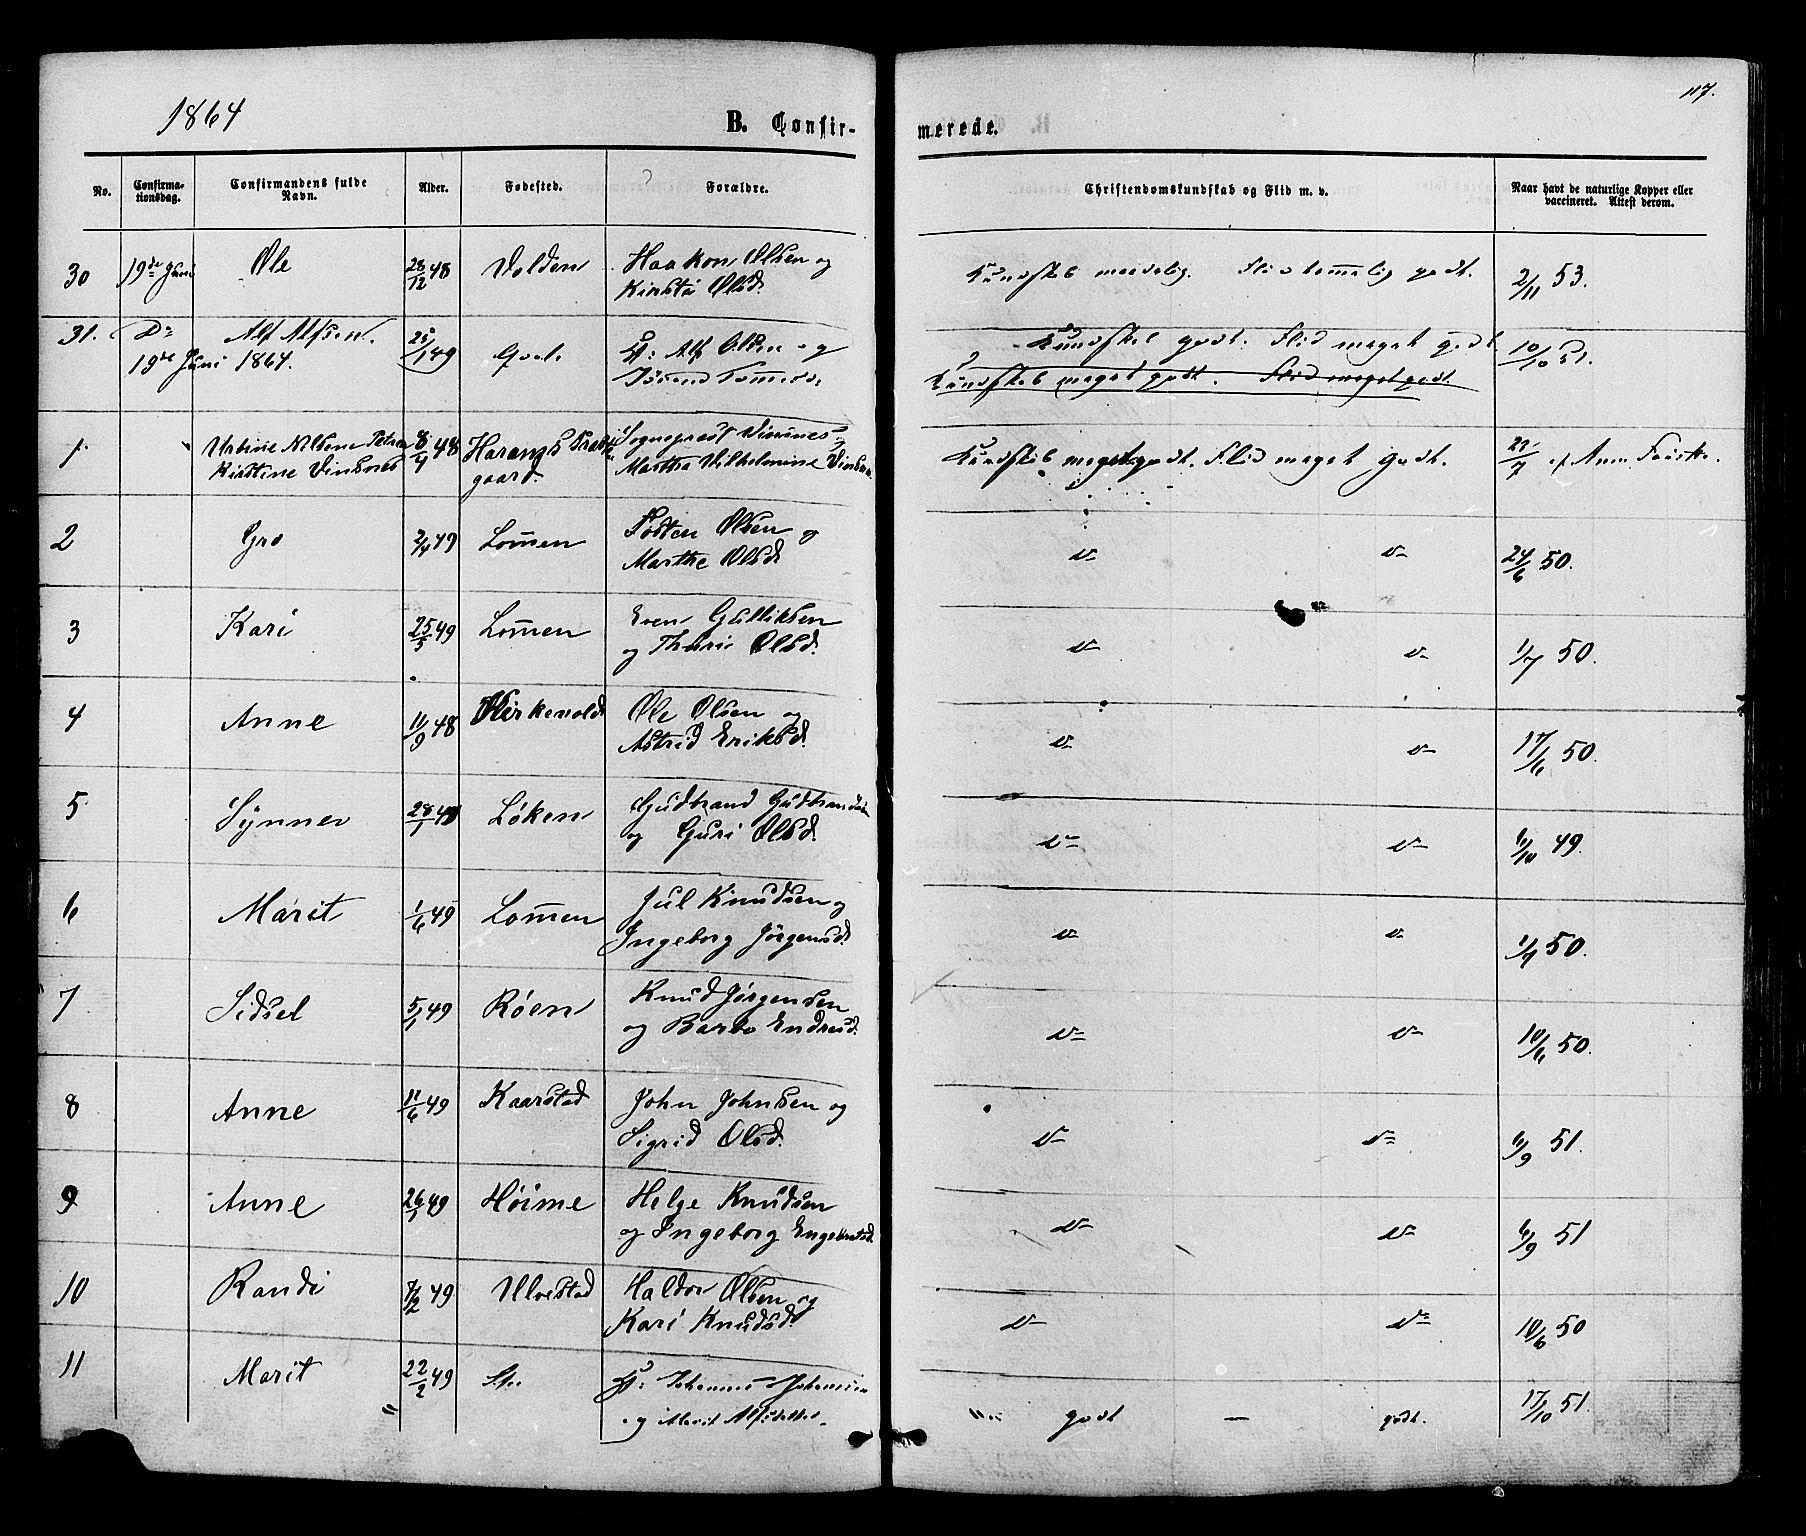 1864
B. Confir-
merede.
117.
No.
Confirma-
tionsdag.
Confirmandens fulde
Navn.
Alder.
Fødested.
Forældre.
Christendomskundskab og Flid m. v.
Naar havt de naturlige Kopper eller
vaccineret. Attest derom.
30 19de Juni Ole 28/12 48 Volden Haakon Olsen og
Olsd.
Kundskab maadelig. Flid temmelig godt. 2/11 53.
31. Do Alf Alfsen. 25/1 49 E: Alf Olsen og
19de Juni 1864.
Kundskab godt. Flid meget godt 10/10 51.
Kundskab meget godt. Flid meget godt
1 Nilsine Petrea 8/4 48 Harangs Præste Sogneprest Vinsnes
Kirstine Vinsnes gaard. Marthea Vilhelmine Vinsnes
Kundskab meget godt. Flid meget Godt.
2 Gro 2/4 49 Lomen Tosten Olsen og
Marthe Olsd.
d- d- 24/6 50.
3 Kari 25/5 49 Lomen Even Gulliksen
og Thurie Olsd.
d- d- 1/7 50.
4 Anne 11/9 48 Ole Olsen og
Astrid Eriksd.
d- d- 17/6 50.
5 Synnev 28/1 49 Løken Gudbrand Gudbrandsen
og Guri Olsd.
d- d- 6/10 49.
6 Marit 1/6 49 Lomen Jul Knudsen og
Ingeborg Jørgensd.
d- d- 1/7 50.
7 Sidsel 5/1 49 Røen Knud Jørgensen
og Barbo Endresd.
d- d- 10/6 50.
8 Anne 11/6 49 Kaarstad John Johnsen og
Sigrid Olsd.
d- d- 6/9 51.
9 Anne 26/1 49 Høime Helge Knudsen
og Ingeborg Engebretsd.
d- d- 6/9 51
10 Randi 7/2 49 Ulvestad Haldor Olsen og
Kari Knudsd.
d- d- 10/6 50
11 Marit 22/2 49 Ste E: Johannes Johansen
og Marit Alfsdatter.
" godt — godt. 17/10 51.